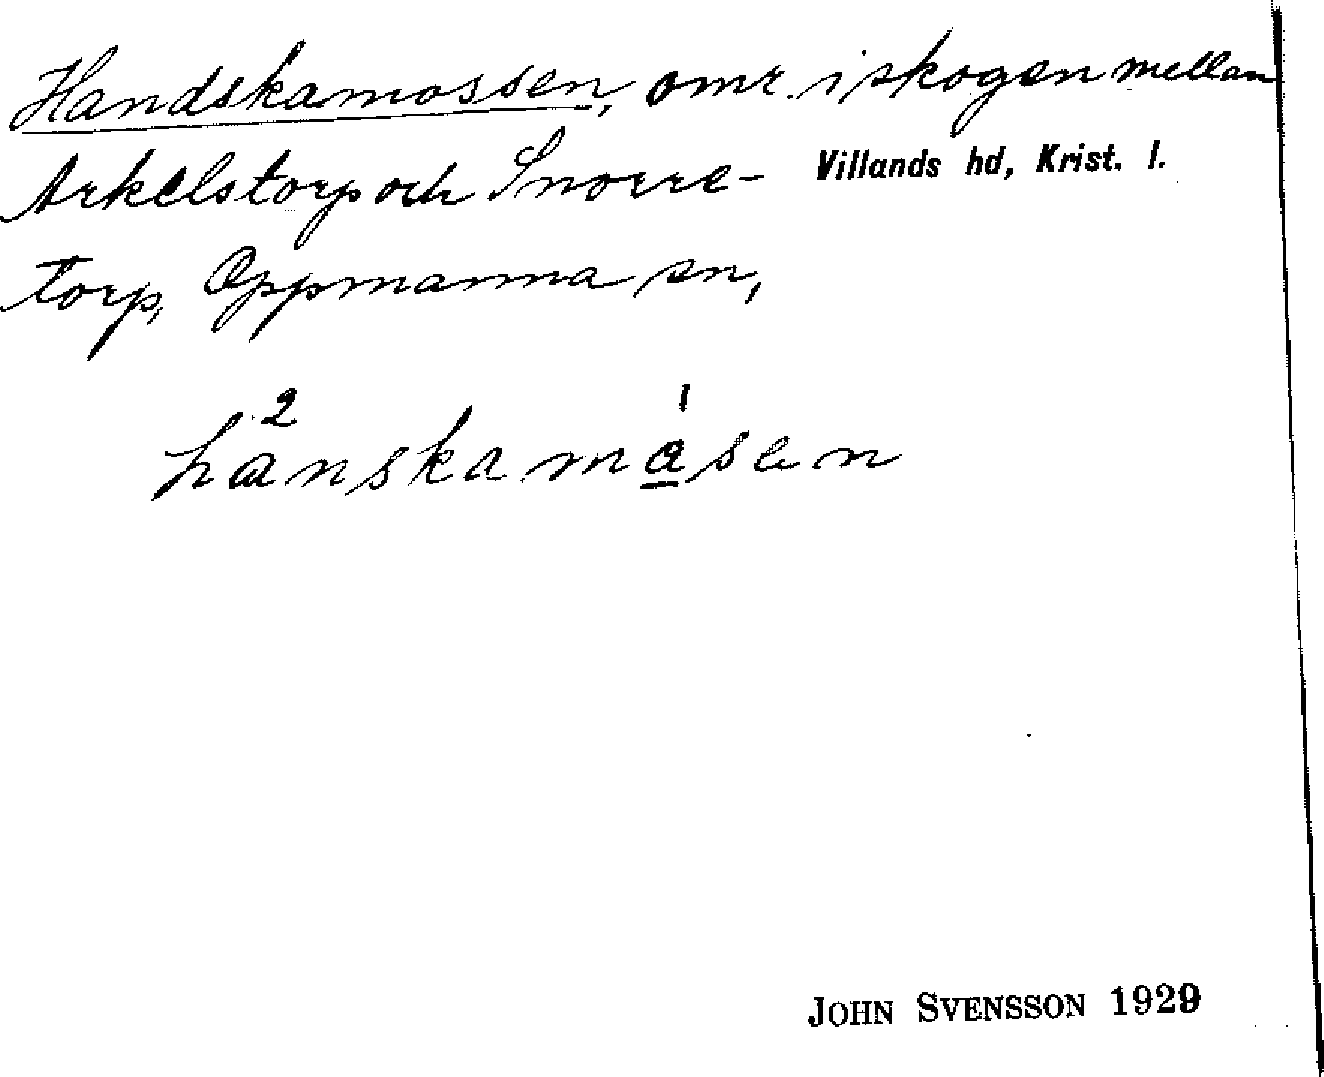 Handskamossen, omr. i skogen mellan
Arkelstorp och Snorre-
Villands hd, Krist. l.
torp, Oppmanna sn,
2 1
hanskamåsen
JOHN SVENSSON 1929